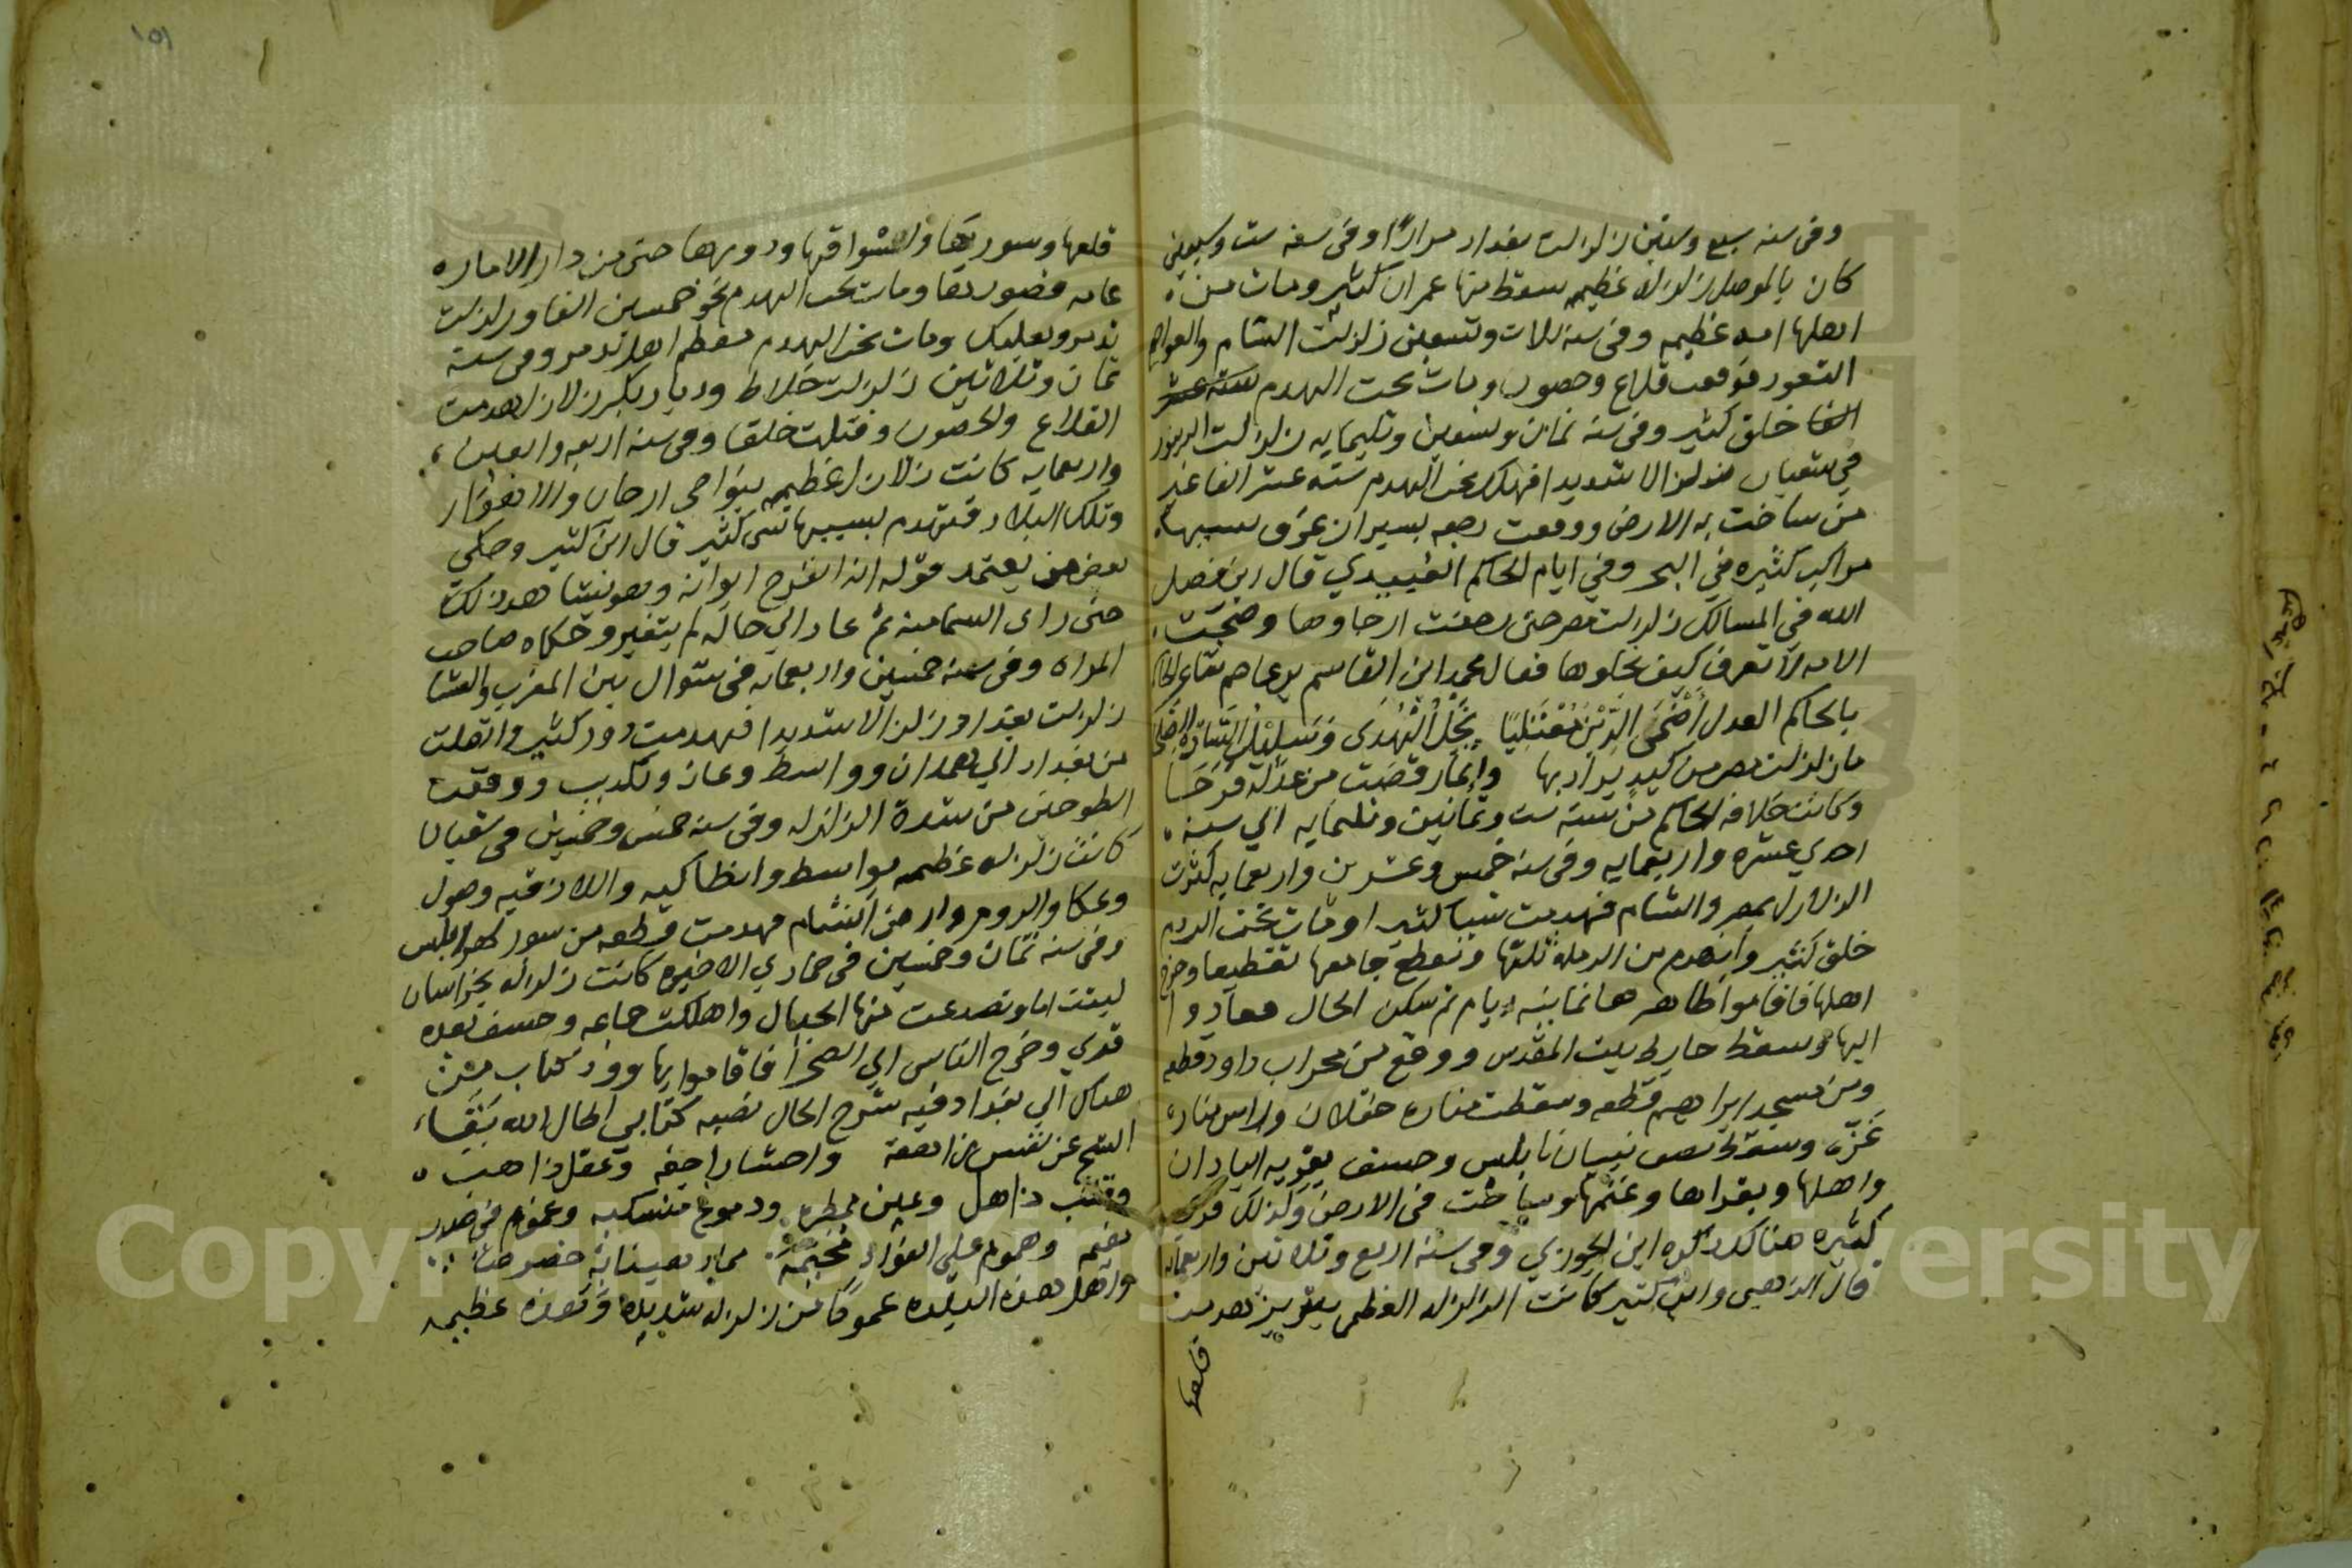 وفى سنه سبع وستين زلزلت بغداد مرارًا وفى سنه ست وسبعين
كان بالموصل زلزله عظيمه سقط منها عمران كثير ومات من
اهلها امه عظيمه وفى سنه ثلاث وتسعين زلزلت الشام والعواصم
الثغور فوقعت قلاع وحصون ومات تحت الهدم
خلق كثير وفى سنه ثمان وتسعين وثليمايه زلزلت الدينور
في شعبان زلزالا شديدا فهلك تحت الهدم سته عشر الفا غير
من ساخت به الارض ووقعت رجعه بسيران غرق بسببها
مراكب كثيره في البحر وفي ايام الحاكم العبيدي قال ابن فضل
الله في المسالك زلزلت مصر حتى رجفت ارجاوها وضجت
الامه لا تعرف كيف نجاوها فقال محمد ابن القاسم بن عاصم شاعر الحاكم
بالحاكم العدل أضحى الدين معتليًا نجل الهدى وسليل السادة الصلحا
ما زلزلت مصر من كيد يراد بها وإنما رقصت من عدله فرحا
وكانت خلافه الحاكم من سنه ست وثمانين وثليمايه الي سنه
احدي عشره واربعمايه وفى سنه خمس وعشرين واربعمايه كثرت
الزلازل بمصر والشام فهدمت شيا كثيرا ومات تحت الردم
خلق كثير وانهدم من الرمله ثلثها وتقطع جامعها تقطيعا وخرج
اهلها فاقاموا ظاهرها ثمانيه ايام ثم سكن الحال فعادوا
اليها وسقط حايط بيت المقدس ووقع من محراب داود قطعه
ومن مسجد ابراهيم قطعه وسقطت مناره عسقلان وراس مناره
غزه وسقط نصف بنيان نابلس وخسف بقريه البادان
واهلها وبقرها وغنمها وساخت فى الارض وكذلك قري
كثيره هنالك ذكره ابن الجوزي وفى سنه اربع وثلاثين واربعمايه
قال الذهبى وابن كثير كانت الزلزله العظمى بتبريز هدمت
قلعها
قلعها وسورها واسواقها ودورها حتى من دار الاماره
عامه قصورها ومات تحت الهدم نحو خمسين الفا وزلزلت
تدمر وبعلبك ومات تحت الهدم معظم اهل تدمر وفى سنه
ثمان وثلاثين زلزلت خلاط وديار بكر زلازل هدمت
القلاع والحصون وقتلت خلقا وفى سنه اربع واربعين
واربعمايه كانت زلازل عظيمه بنواحى ارجان والاهواز
وتلك البلاد فتهدم بسببها شى كثير قال ابن كثير وحكى
بعض من يعتمد قوله انه انفرج ايوانه وهو يشاهد ذلك
حتى راى السما منه ثم عاد الي حاله لم يتغير وحكاه صاحب
المراه وفى سنه خمسين واربعمايه فى شوال بين المغرب والعشا
زلزلت بغداد زلزالا شديدا فهدمت دور كثيره واتصلت
من بغداد الي همدان وواسط وعانه وتكريت ووقفت
الطواحين من شدة الزلزله وفى سنه خمس وخمسين فى شعبان
كانت زلزله عظيمه بواسط وانطاكيه واللاذقيه وصول
وعكا والروم وارض الشام فهدمت قطعه من سور طرابلس
وفى سنه ثمان وخمسين فى جمادي الاخيره كانت زلزله بخراسان
لبثت اياما وتصدعت منها الجبال واهلكت جماعه وخسف بعده
قري وخرج الناس الي الصحرا فاقاموا بها وورد كتاب من
هناك الي بغداد فيه شرح الحال نصه كتابي اطال الله بقاء
الشيخ عن نفس ذاهبة واحشا راجفه وعقل ذاهب
وقلب ذاهل وعين ممطره ودموع منسكبه وغموم في صدر
مقيم وهموم على الفؤاد مخيمة
واهل هذه البلده عموما من زلزله شديده وهذه عظيمه
١٥١